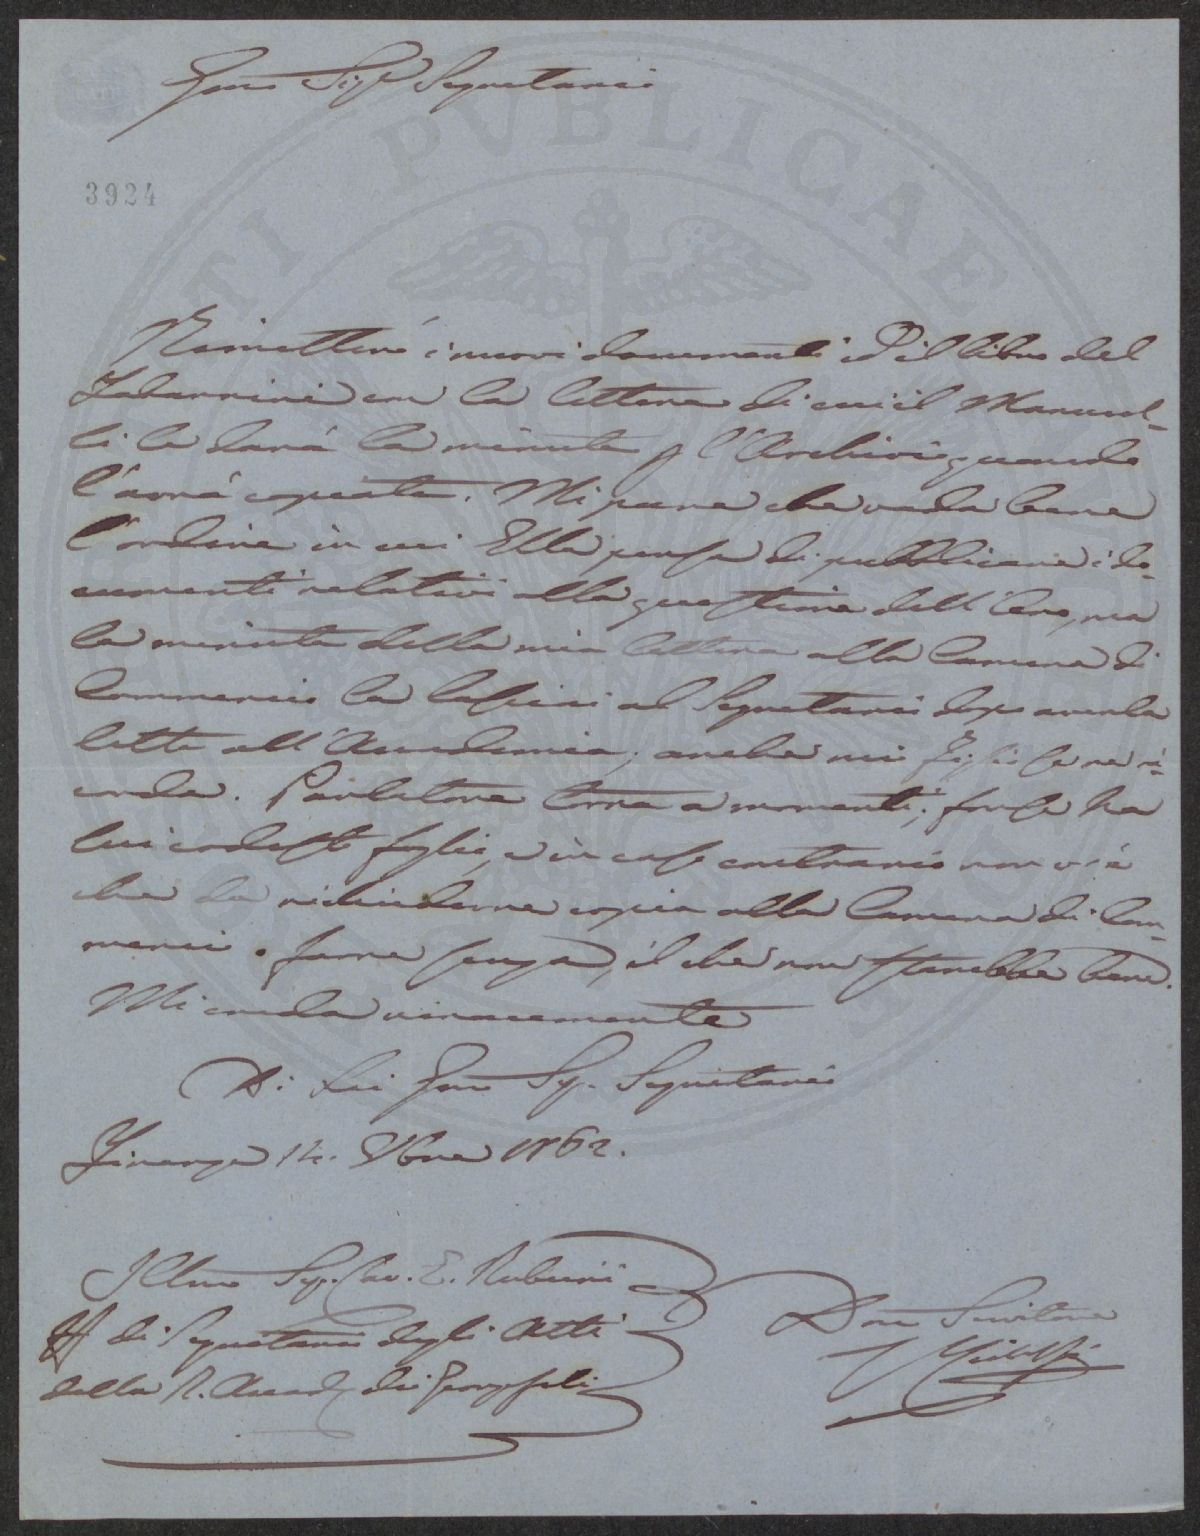 Sig.r Segretario
3924
Rimetterò i nuovi documenti ed il libro del
con la lettera di cui il Manuel-
li le darà la minuta p l'Archivio, quando
l'avrà copiata. Mi pare che vada bene
l'ordine in cui Ella pensa di pubblicare i do-
cumenti relativi alla questione dell'
la minuta della mia lettera alla Camera di
Commercio la lasciai al Segretario dopo averla
letta all'Accademia; anche mio figlio se ne ri-
corda. Parlatore torna a momenti; forse ha
lui codesto foglio, e in caso contrario non vi è
che da richiederne copia alla Camera di Com-
mercio o farne senza, il che non starebbe bene.
Mi creda
Di Lei Sig. Segretario
Firenze 14. 1862.
Illmo Sig. Cav. E. Rubieri
ff di Segretario degli Atti
della R. Accad. dei Georgofili
Dev Servitore
PUBLICAE